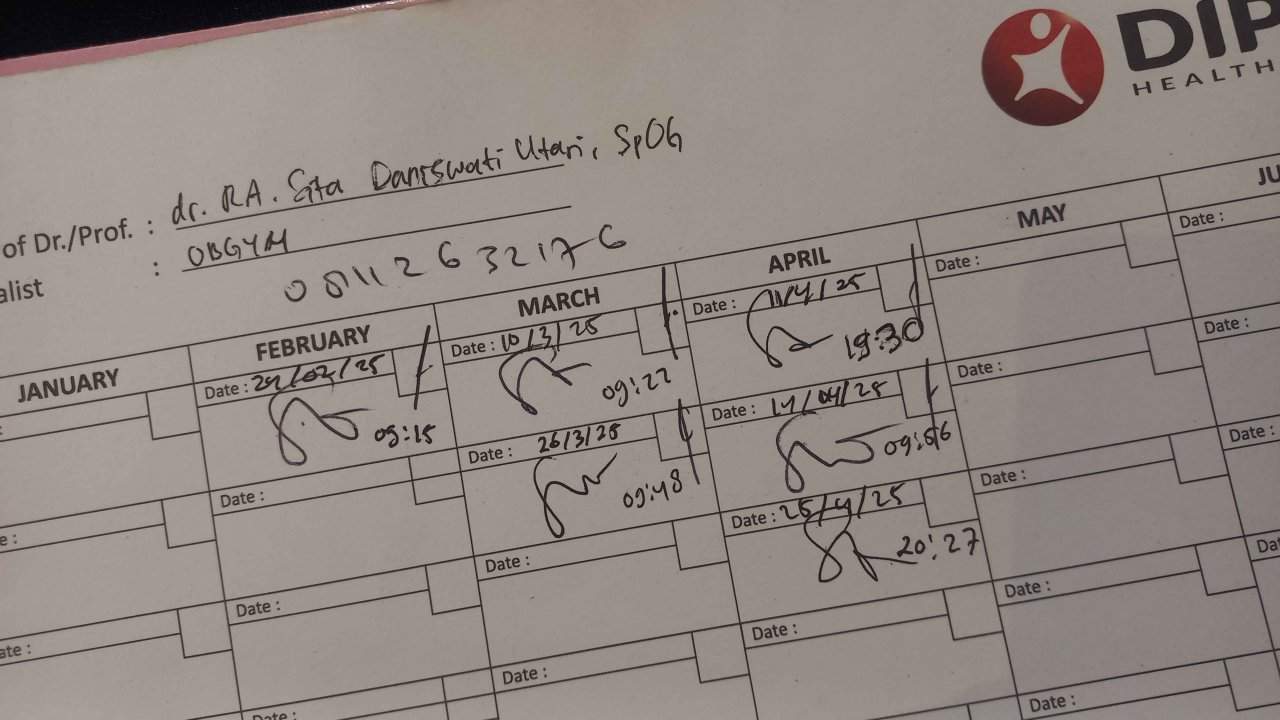 DIP
HEALTH
of Dr./Prof. : dr. RA. Sita Daniswati Utari, SpOG
alist : OBGYN
08112632176
JANUARY
FEBRUARY
MARCH
APRIL
MAY
JU
Date : /02/25
09:15
Date : 10/3/25
09:22
Date : 11/4/25
19:30
Date :
Date :
Date :
Date : 26/3/25
09:48
Date : 14/04/25
09:56
Date :
Date :
e :
Date :
Date :
Date : 25/4/25
20:27
Date :
Date :
ate :
Date :
Date :
Date :
Date :
Da
Date :
Date :
Date :